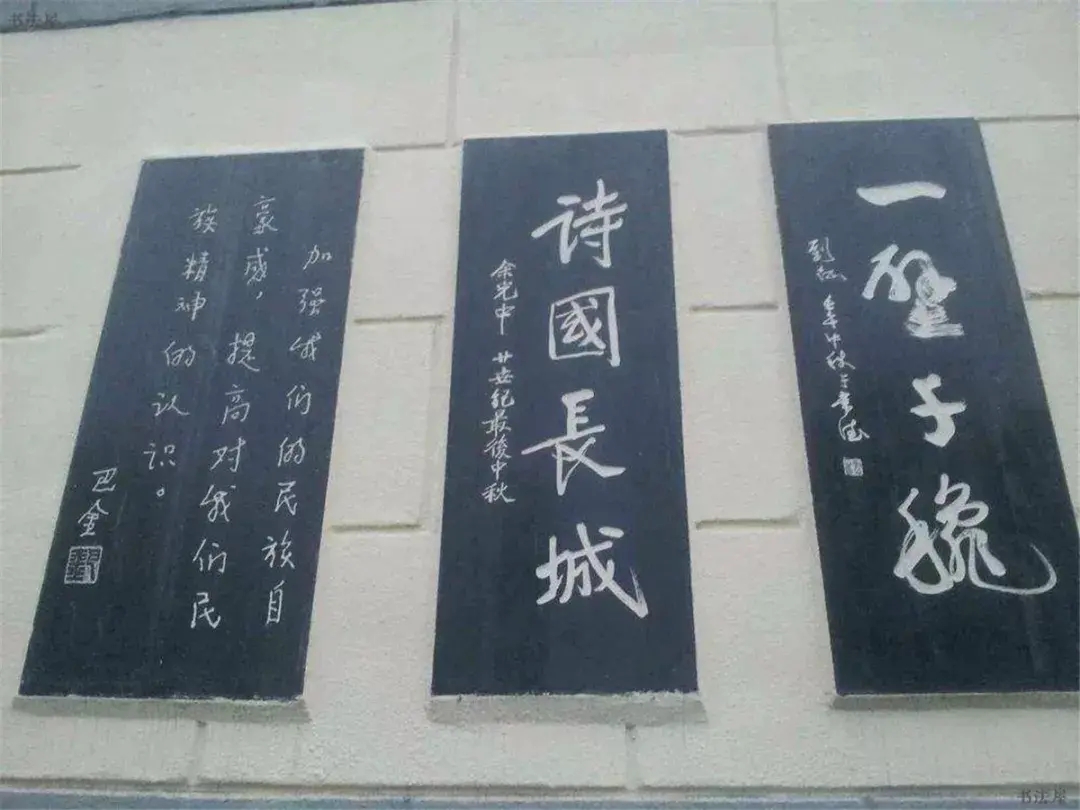 书法屋
一壁千秋
詩國長城
余光中 廿世纪最後中秋
加强我们的民族自
豪感，提高对我们民
族精神的认识。
巴金
书法屋